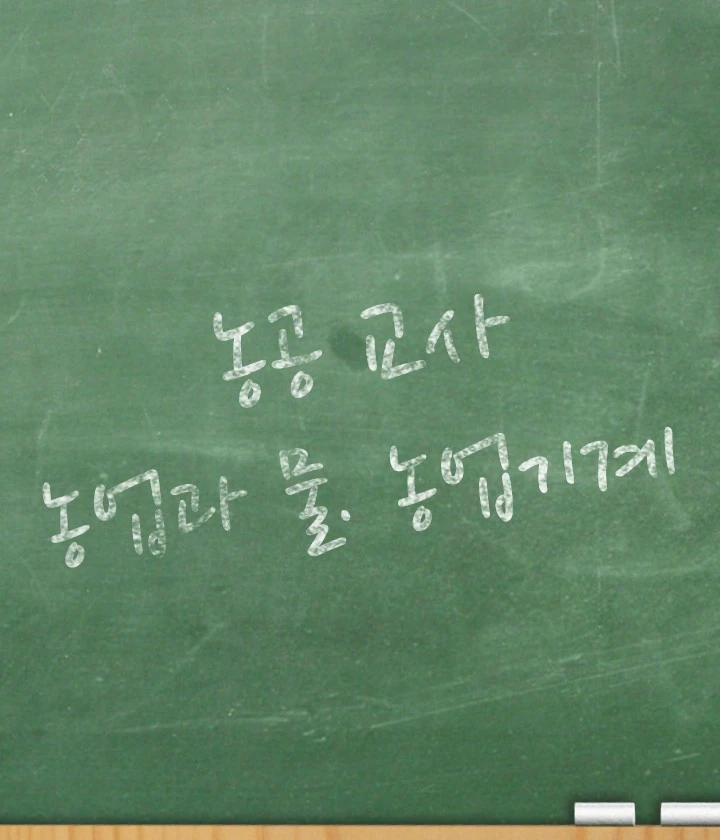 농공 교사
농업과 물. 농업기계